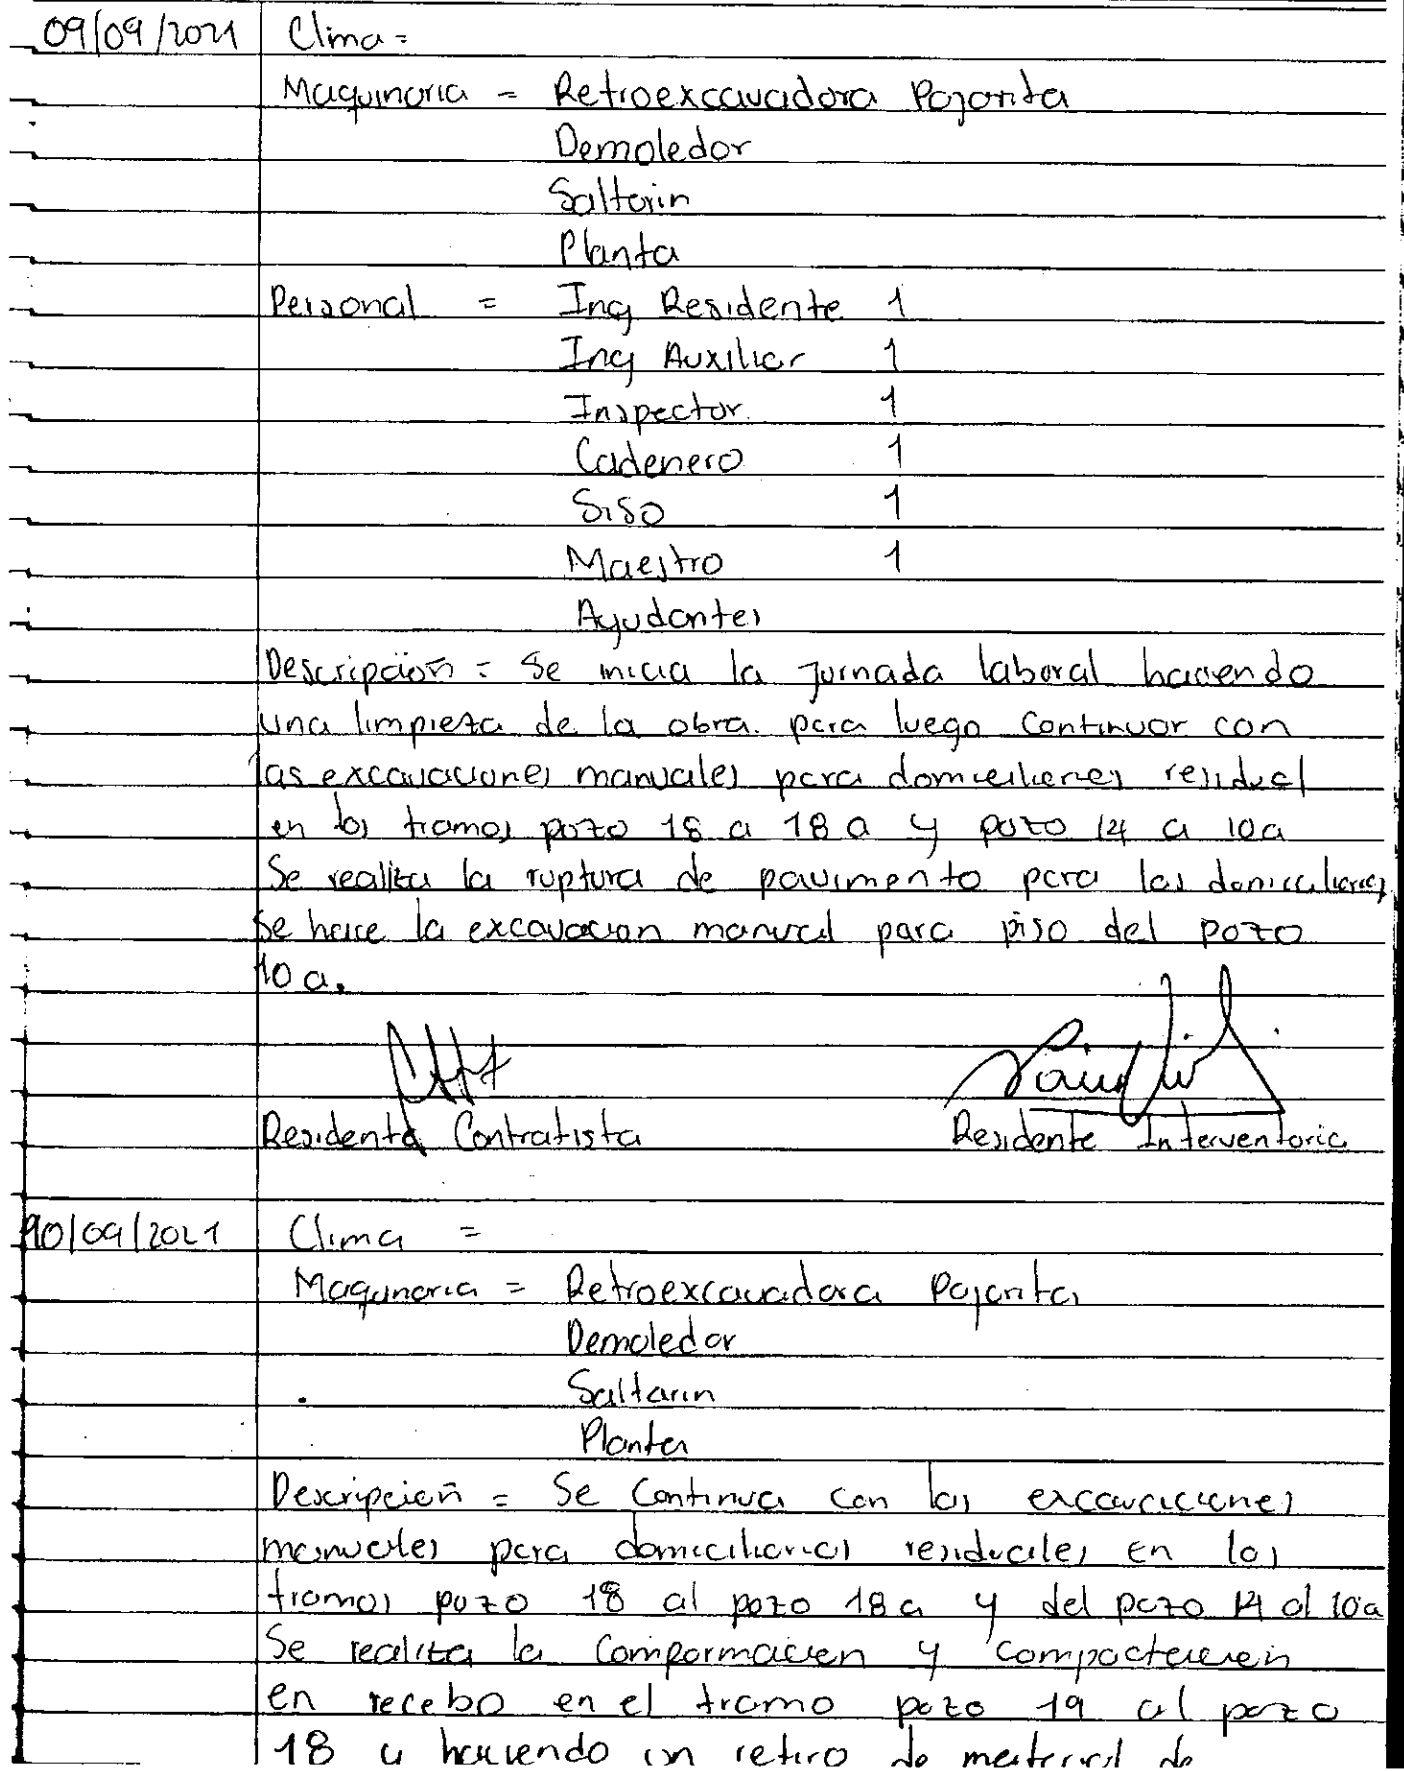 09/09/2021 Clima =
Maquinaria = Retroexcavadora Pajarita
Demoledor
Saltarin
Planta
Personal = Ing Residente 1
Ing Auxiliar 1
Inspector 1
Cadenero 1
SiSo 1
Maestro 1
Ayudantes
Descripción = Se inicia la jornada laboral haciendo
una limpieza de la obra. para luego continuar con
las excavaciones manuales para residual
en los tramos pozo 18 a 18 a y pozo 14 a 10a
Se realiza la ruptura de pavimento para las domiciliarias
se hace la excavacion manual para piso del pozo
10 a.
Residente Contratista Residente Interventoria
10/09/2021 Clima =
Maquinaria = Retroexcavadora Pajarita
Demoledor
Saltarin
Planta
Descripción = Se continua con las excavaciones
manuales para domiciliarias residuales en los
tramos pozo 18 al pozo 18a y del pozo 14 al 10a
Se realiza la y
en recebo en el tramo pozo 19 al pozo
18 a haciendo un retiro de material de